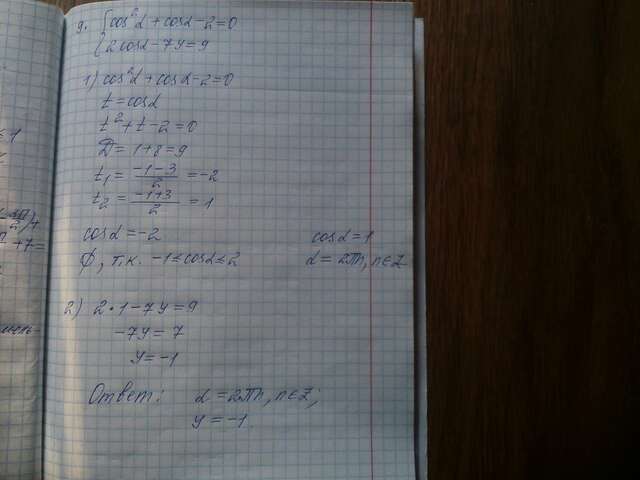 9. { cos²α + cosα - 2 = 0
{ 2cosα - 7y = 9
1) cos²α + cosα - 2 = 0
t = cosα
t² + t - 2 = 0
D = 1 + 8 = 9
t₁ = (-1-3)/2 = -2
t₂ = (-1+3)/2 = 1
cosα = -2 cosα = 1
∅, т.к. -1 ≤ cosα ≤ 2 α = 2πn, n∈Z
2) 2·1 - 7y = 9
-7y = 7
y = -1
Ответ: α = 2πn, n∈Z;
y = -1.